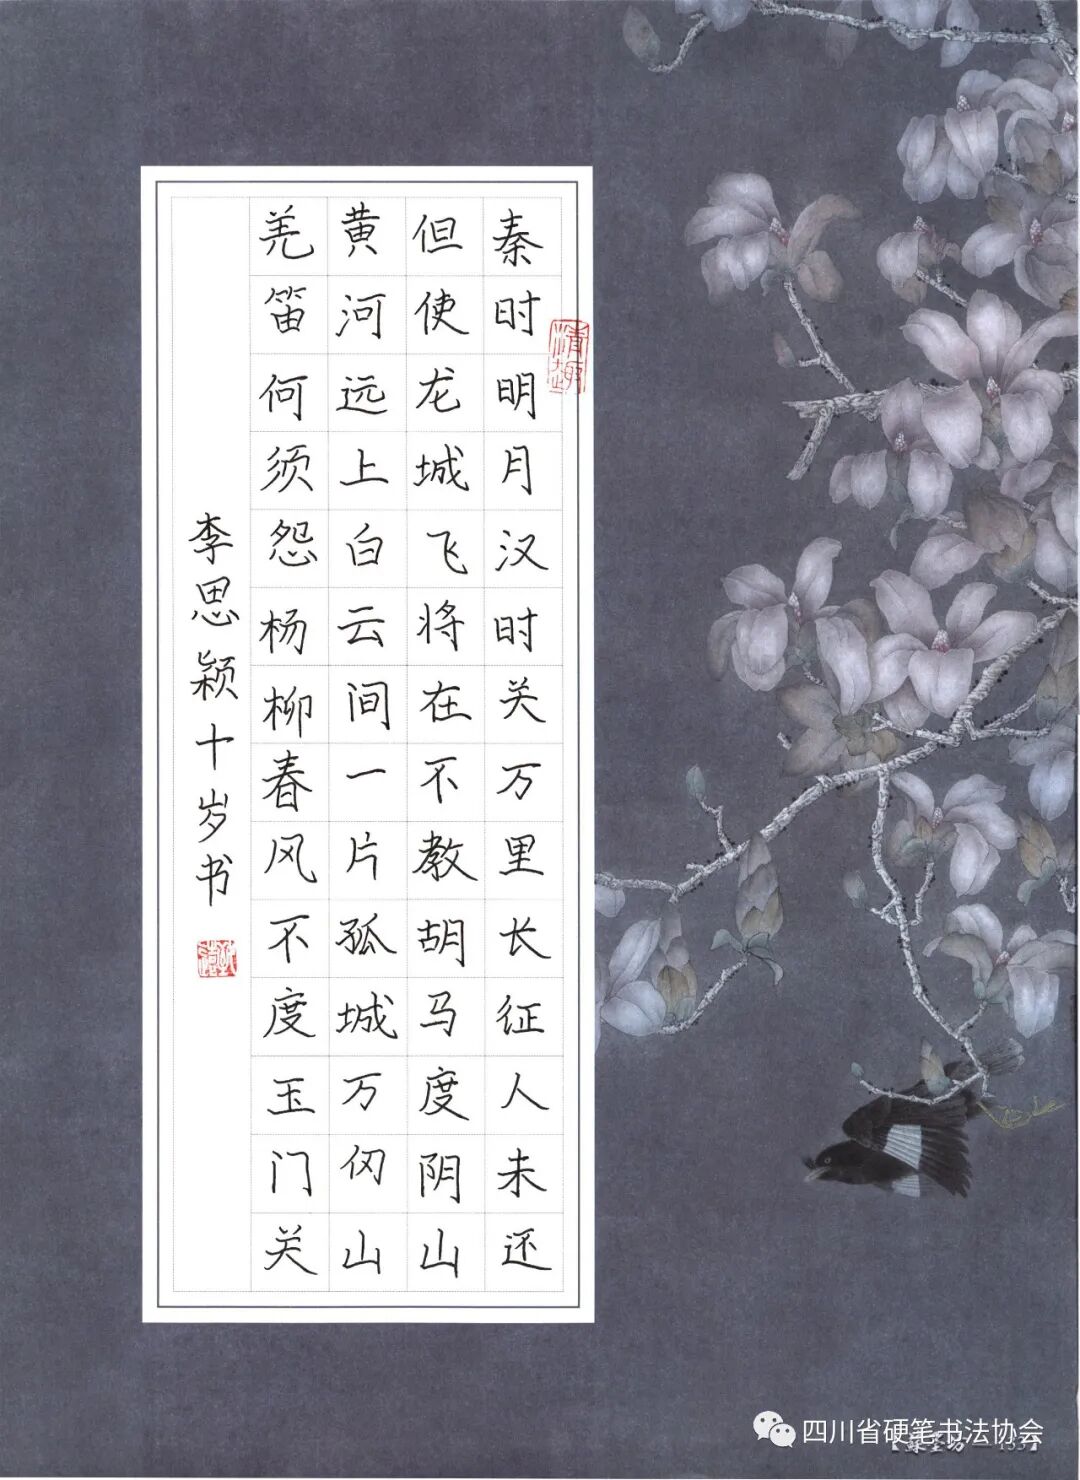 秦时明月汉时关万里长征人未还
但使龙城飞将在不教胡马度阴山
黄河远上白云间一片孤城万仞山
羌笛何须怨杨柳春风不度玉门关
李思颖十岁书
情趣
四川省硬笔书法协会